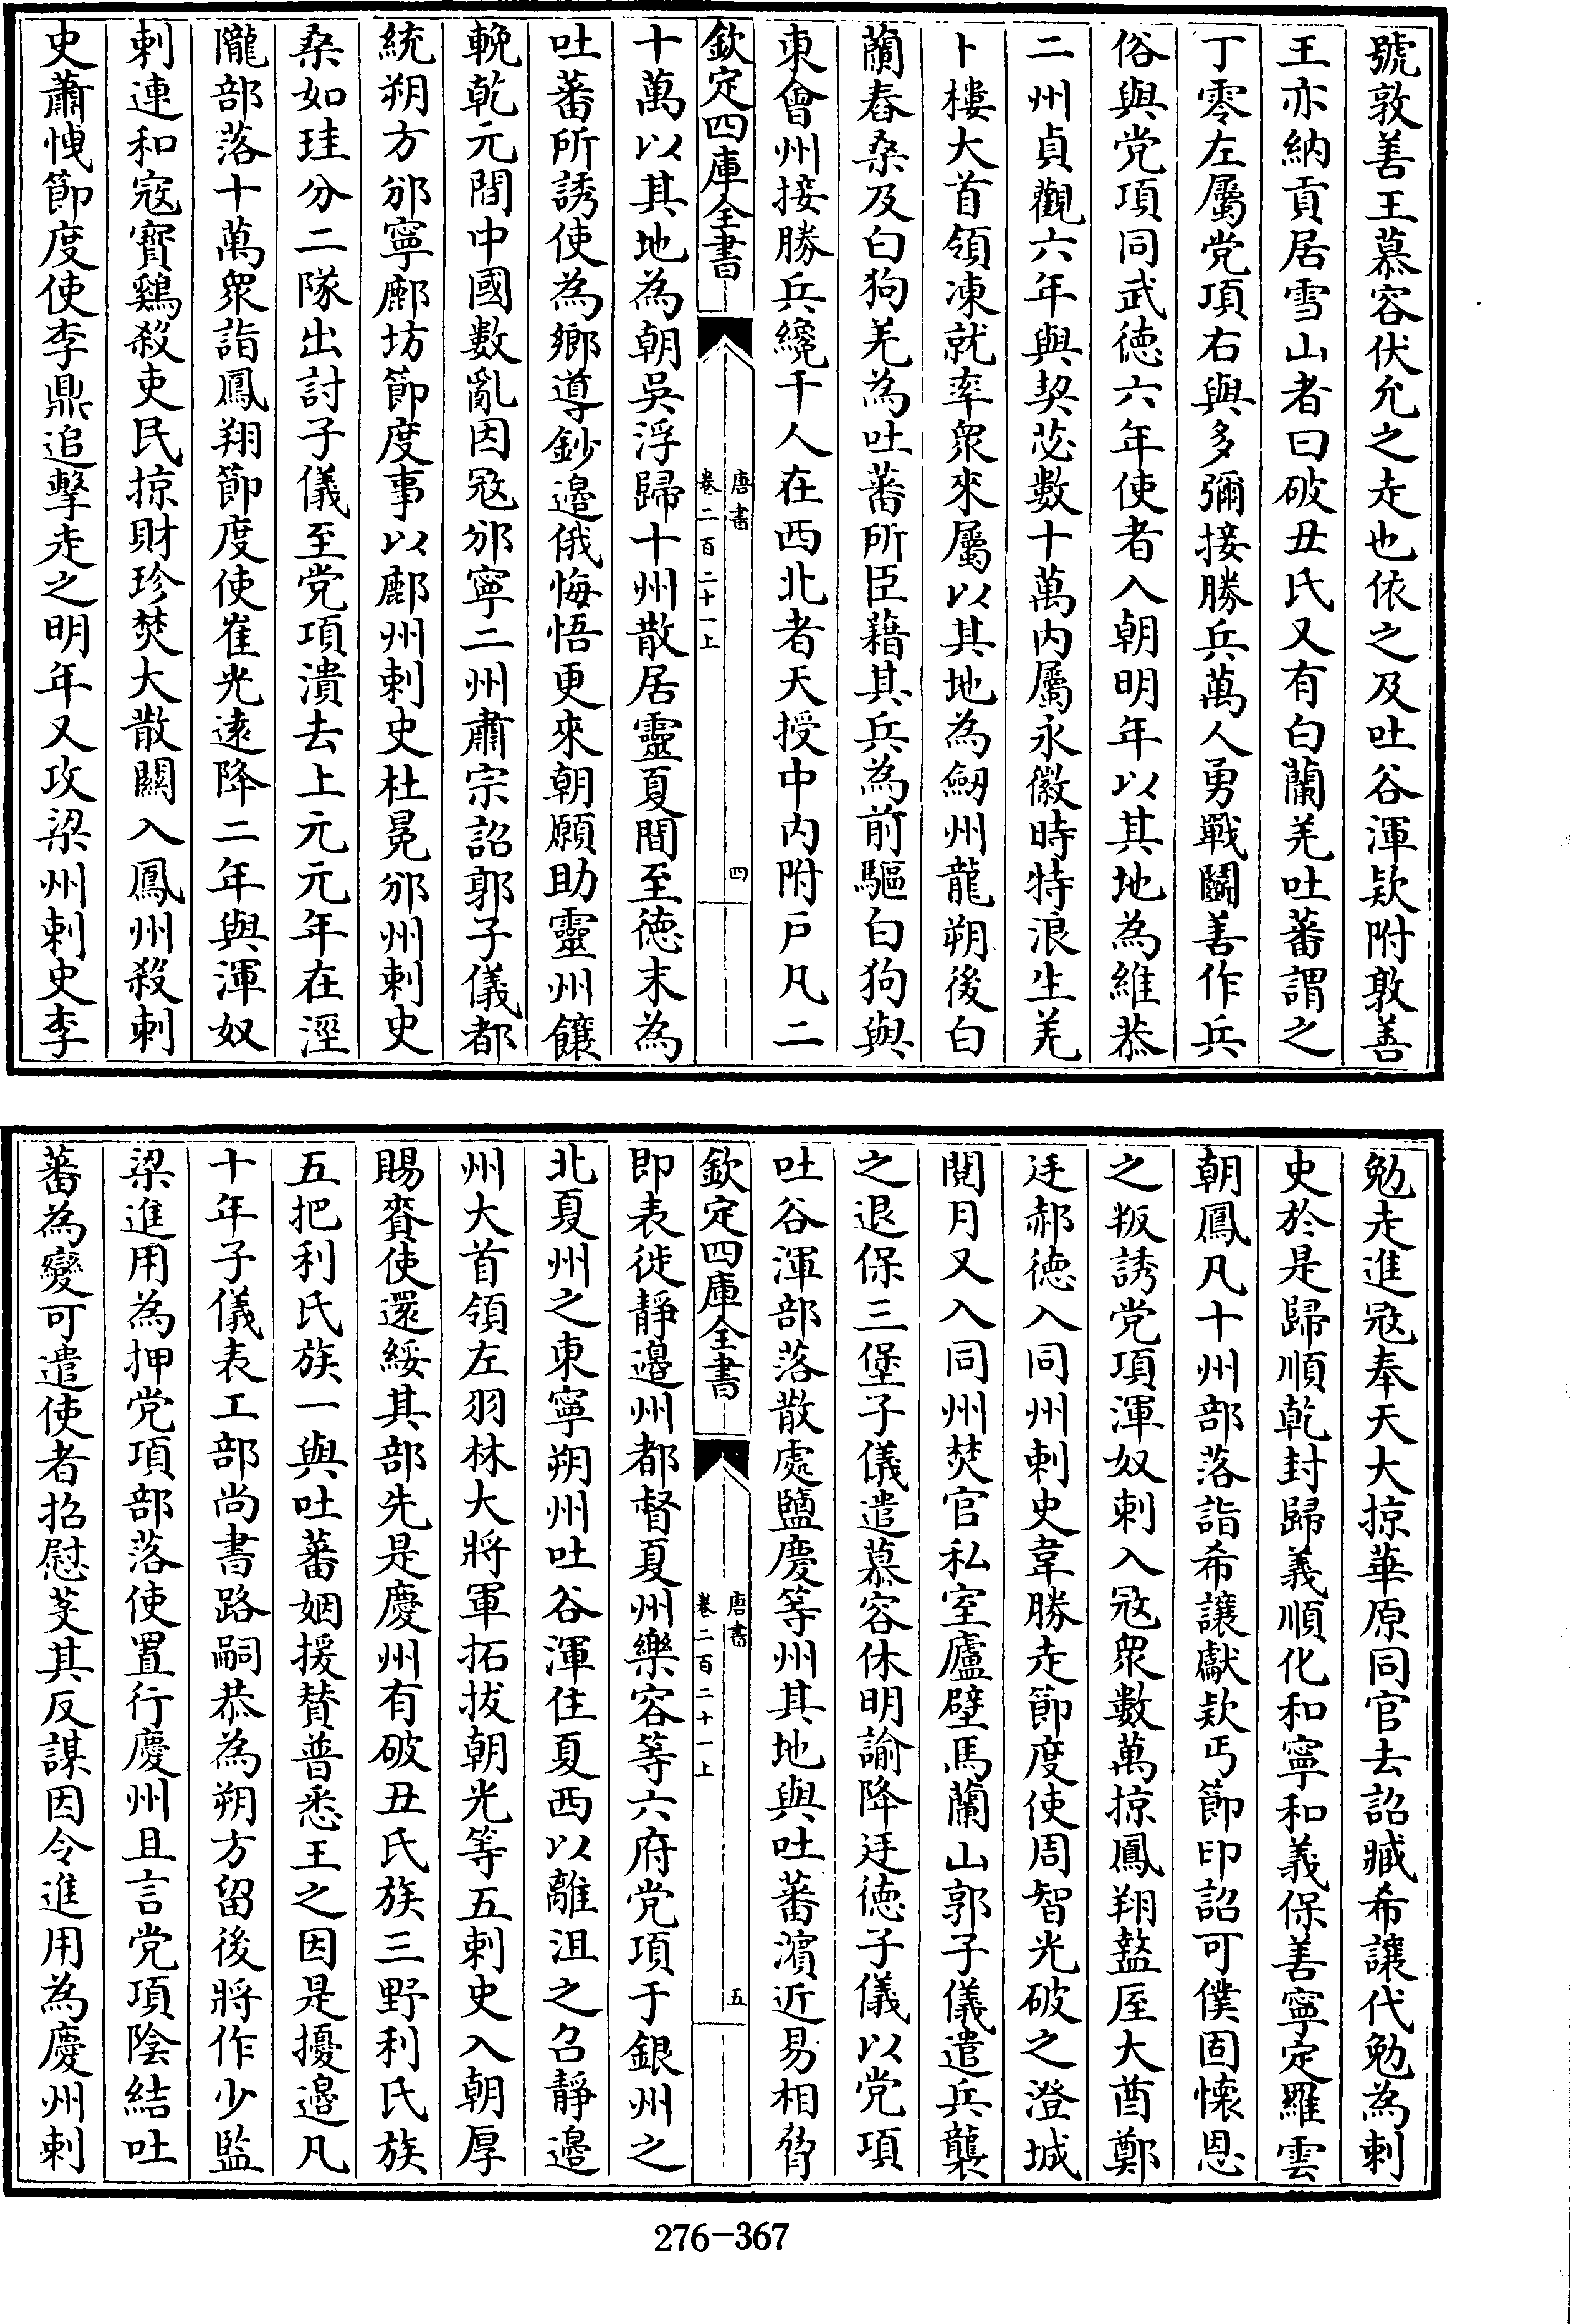 號敦善王慕容伏允之走也依之及吐谷渾欵附敦善
王亦納貢居雪山者曰破丑氏又有白蘭羌吐蕃謂之
丁零左屬党項右與多彌接勝兵萬人勇戰鬭善作兵
俗與党項同武徳六年使者入朝明年以其地為維恭
二州貞觀六年與契苾數十萬内屬永徽時特浪生羌
卜樓大首領凍就率衆來屬以其地為劒州龍朔後白
蘭舂桑及白狗羌為吐蕃所臣藉其兵為前驅白狗與
東㑹州接勝兵纔千人在西北者天授中内附户凡二
欽定四庫全書
唐書
卷二百二十一上
四
十萬以其地為朝吳浮歸十州散居靈夏間至徳末為
吐蕃所誘使為鄉導鈔邉俄悔悟更來朝願助靈州饟
輓乾元間中國數亂因冦邠寧二州肅宗詔郭子儀都
統朔方邠寧鄜坊節度事以鄜州刺史杜冕邠州刺史
桑如珪分二隊出討子儀至党項潰去上元元年在涇
隴部落十萬衆詣鳳翔節度使崔光逺降二年與渾奴
刺連和寇寳鷄殺吏民掠財珍焚大散闗入鳳州殺刺
史蕭㥄節度使李鼎追擊走之明年又攻梁州刺史李
勉走進冦奉天大掠華原同官去詔臧希讓代勉為刺
史於是歸順乾封歸義順化和寧和義保善寧定羅雲
朝鳳凡十州部落詣希讓獻欵丐節印詔可僕固懐恩
之叛誘党項渾奴刺入冦衆數萬掠鳳翔盩厔大酋鄭
廷郝徳入同州刺史韋勝走節度使周智光破之澄城
閱月又入同州焚官私室廬壁馬蘭山郭子儀遣兵襲
之退保三堡子儀遣慕容休明諭降廷徳子儀以党項
吐谷渾部落散處鹽慶等州其地與吐蕃濱近易相脅
欽定四庫全書
唐書
卷二百二十一上
五
即表徙靜邉州都督夏州樂容等六府党項于銀州之
北夏州之東寧朔州吐谷渾住夏西以離沮之召靜邉
州大首領左羽林大將軍拓拔朝光等五刺史入朝厚
賜賚使還綏其部先是慶州有破丑氏族三野利氏族
五把利氏族一與吐蕃姻援賛普悉王之因是擾邉凡
十年子儀表工部尚書路嗣恭為朔方留後將作少監
梁進用為押党項部落使置行慶州且言党項隂結吐
蕃為變可遣使者招慰芟其反謀因令進用為慶州刺
276-367